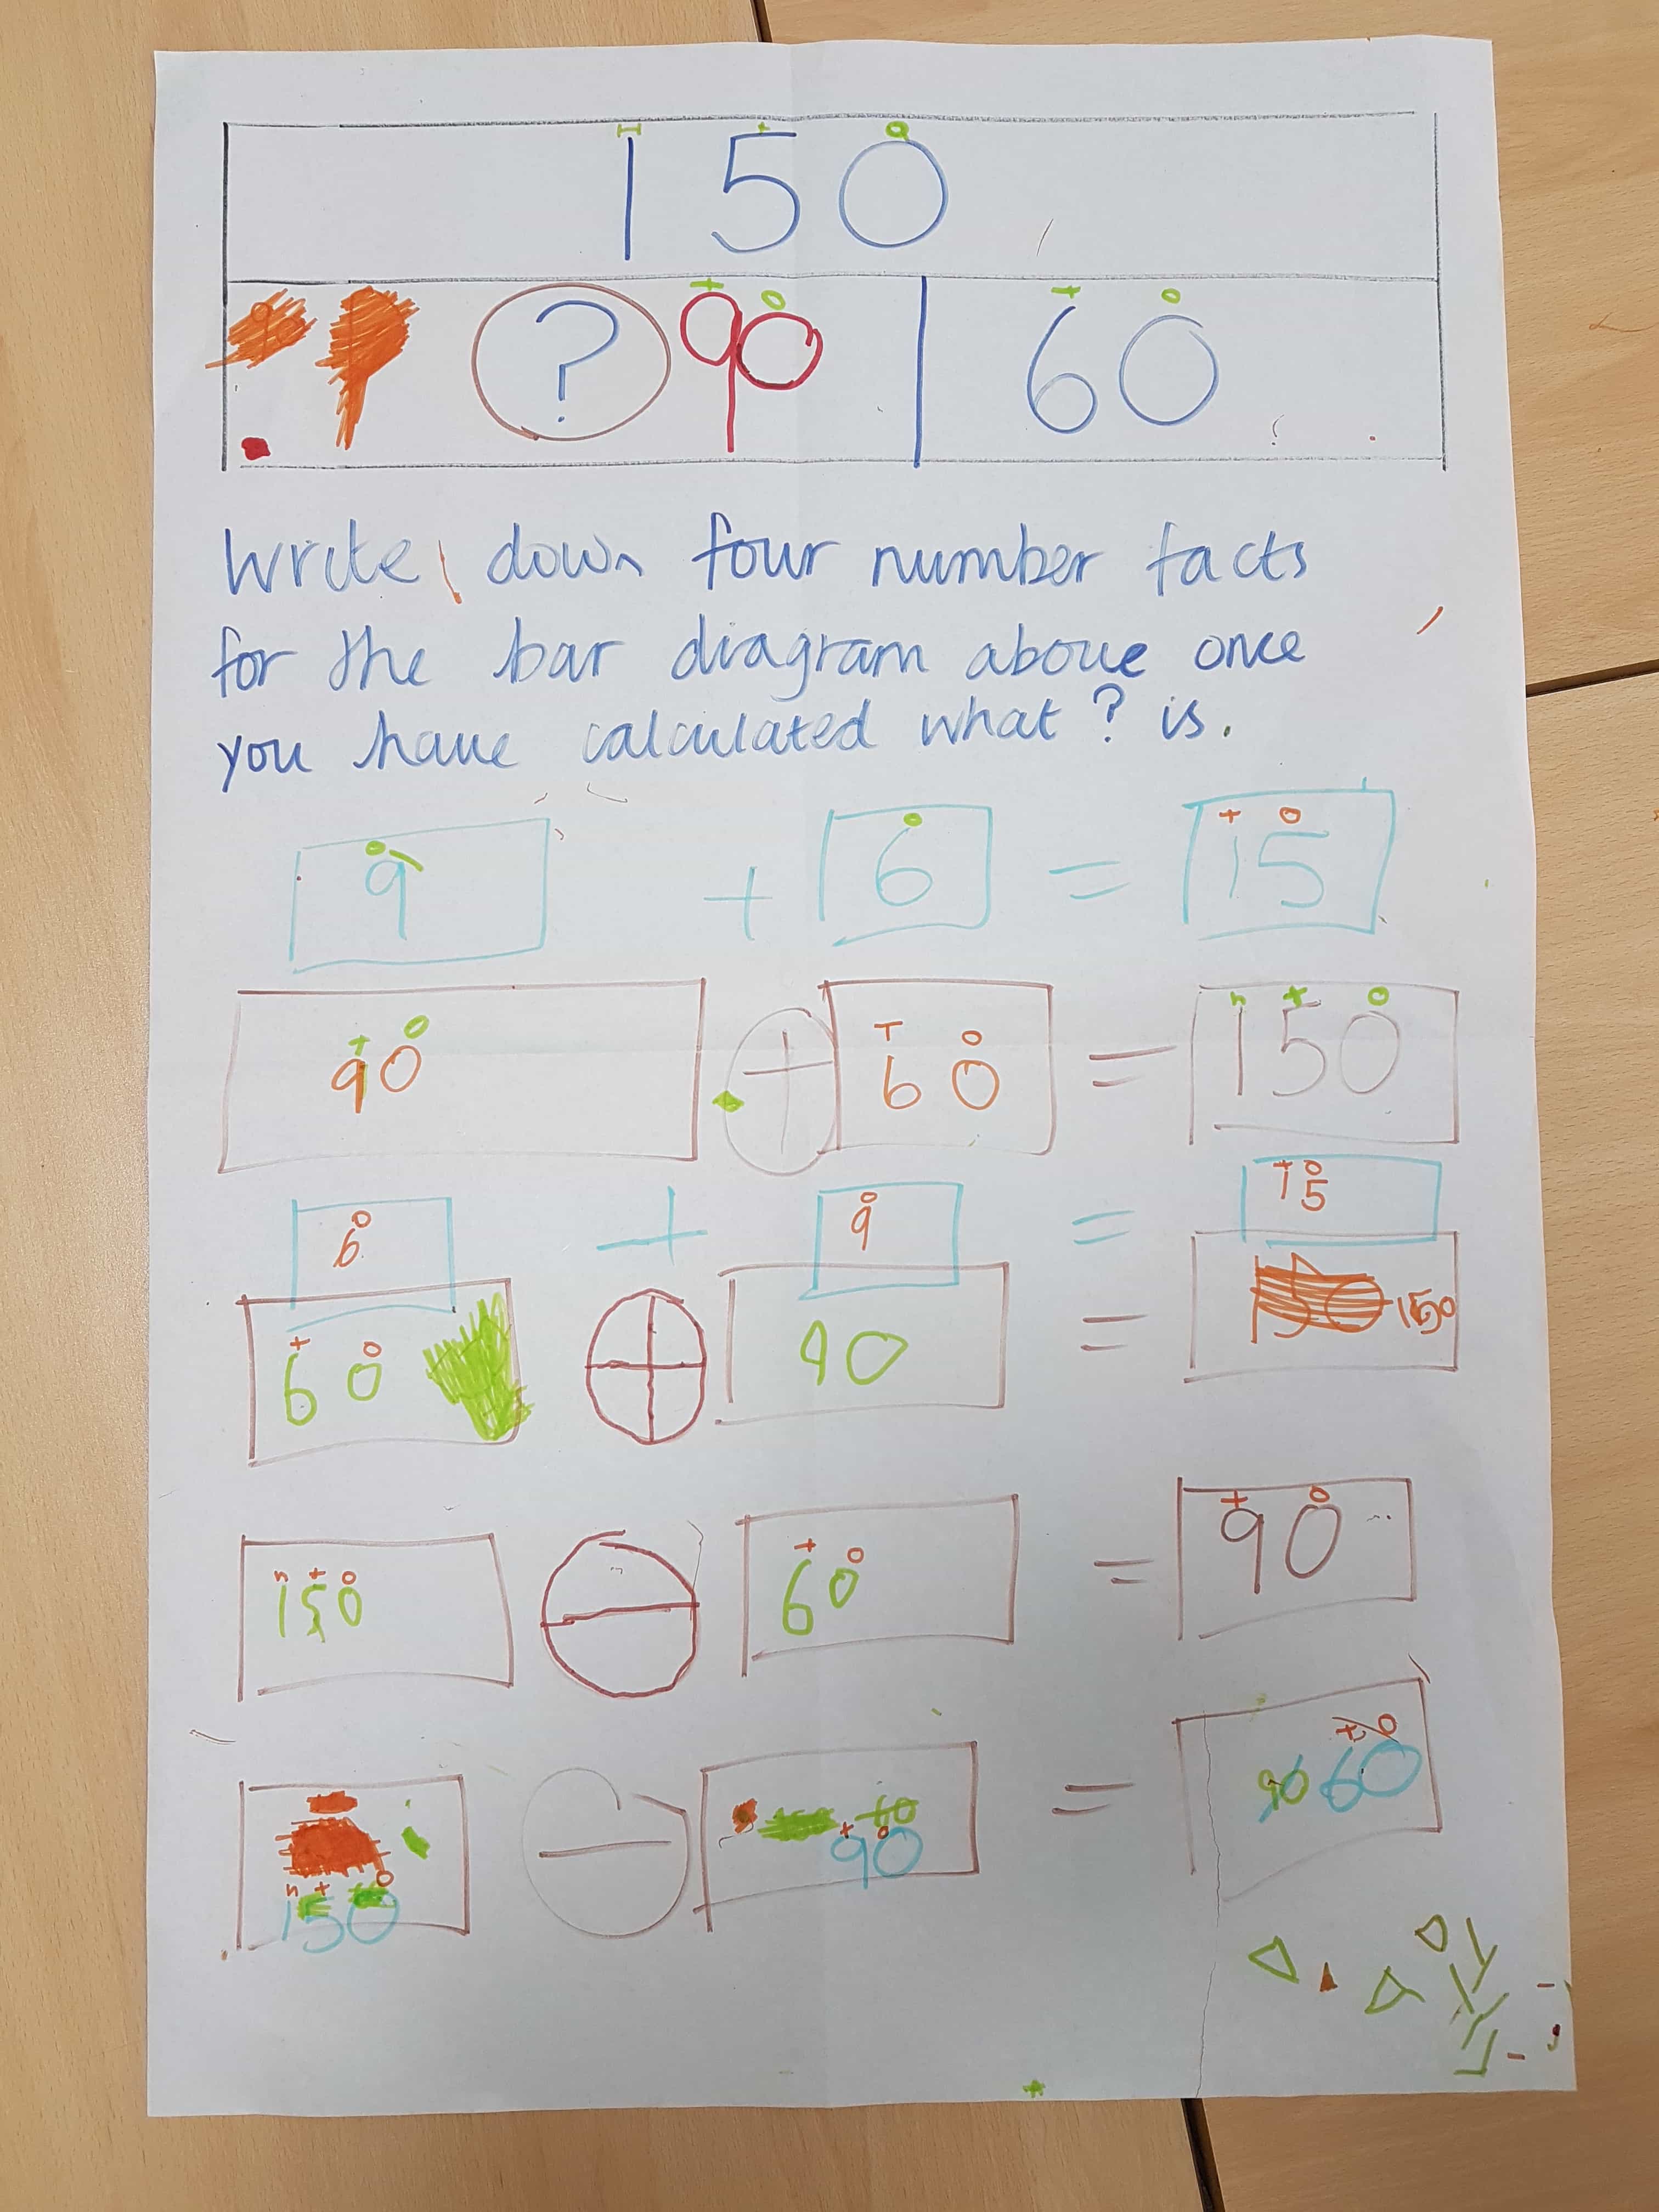 H T O
150
T O T O
? 90 60
Write down four number facts
for the bar diagram above once
you have calculated what ? is.
O O T O
9 + 6 = 15
T O T O h t O
90 + 60 = 150
O O T O
6 + 9 = 15
T O
60 + 90 = 150
h t O T O T O
150 - 60 = 90
t O
h t O t O
150 - 90 = 60